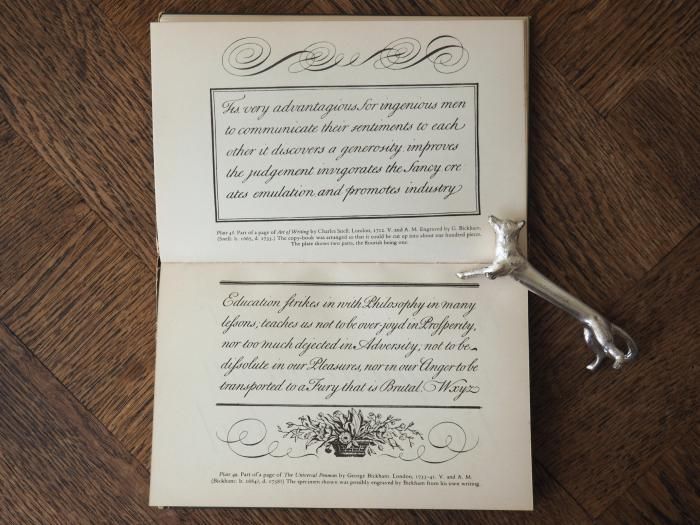 Tis very advantagious for ingenious men
to communicate their sentiments to each
other it discovers a generosity improves
the judgement invigorates the fancy cre
ates emulation and promotes industry
Plate 48. Part of a page of Art of Writing by Charles Snell. London, 1712. V. and A. M. Engraved by G. Bickham.
(Snell: b. 1667, d. 1733.) The copy-book was arranged so that it could be cut up into about one hundred pieces.
The plate shows two parts, the flourish being one.
Education ſtrikes in with Philosophy in many
leſsons; teaches us not to be over-joy'd in Proſperity,
nor too much dejected in Adversity; not to be
diſsolute in our Pleasures, nor in our Anger to be
transported to a Fury that is Brutal. Wxyz
Plate 49. Part of a page of The Universal Penman by George Bickham. London, 1733-41. V. and A. M.
(Bickham: b. 1684?, d. 1758?) The specimen shown was possibly engraved by Bickham from his own writing.